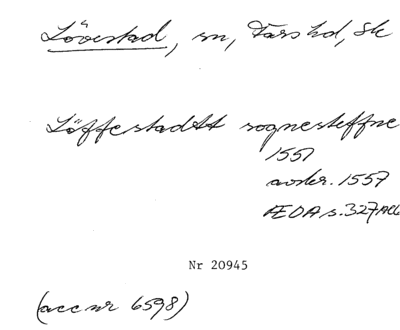 Lövestad, sn, Färs hd, Sk
Löffestadtt sognesteffne
1557
avskr. 1557
ÆDA s. 327
Nr 20945
(acc nr 6598)